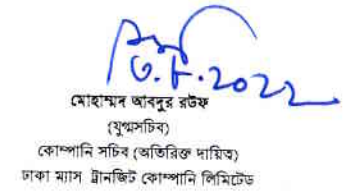 ৩.৮.2022
মোহাম্মদ আবদুর রউফ
(যুগ্মসচিব)
কোম্পানি সচিব (অতিরিক্ত দায়িত্ব)
ঢাকা ম্যাস ট্রানজিট কোম্পানি লিমিটেড